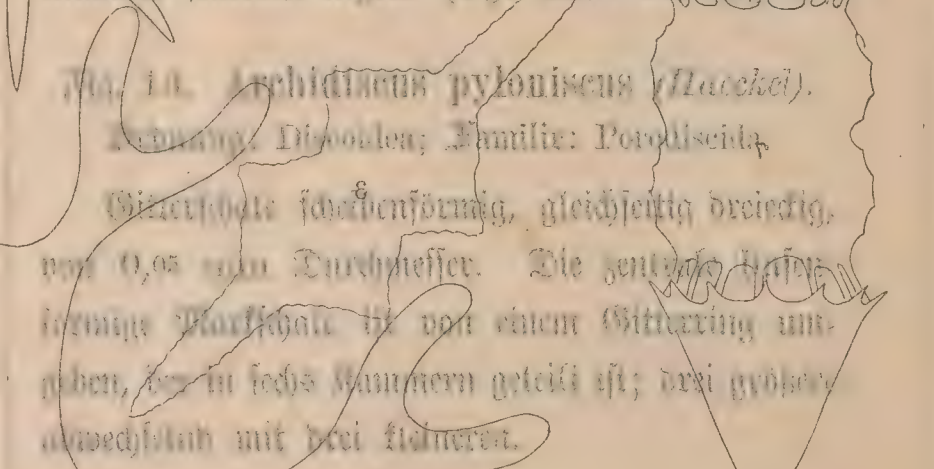 Archidiscus pyloniscus (Haeckel).
Ordnung: Discoidea; Familie: Porodiscida.
Gitterschale scheibenförmig, gleichseitig dreieckig,
von 0,05 mm Durchmesser. Die zentrale linsen-
förmige Markschale ist von einem Gitterring um-
geben, der in sechs Kammern geteilt ist; drei größere
abwechselnd mit drei kleineren.